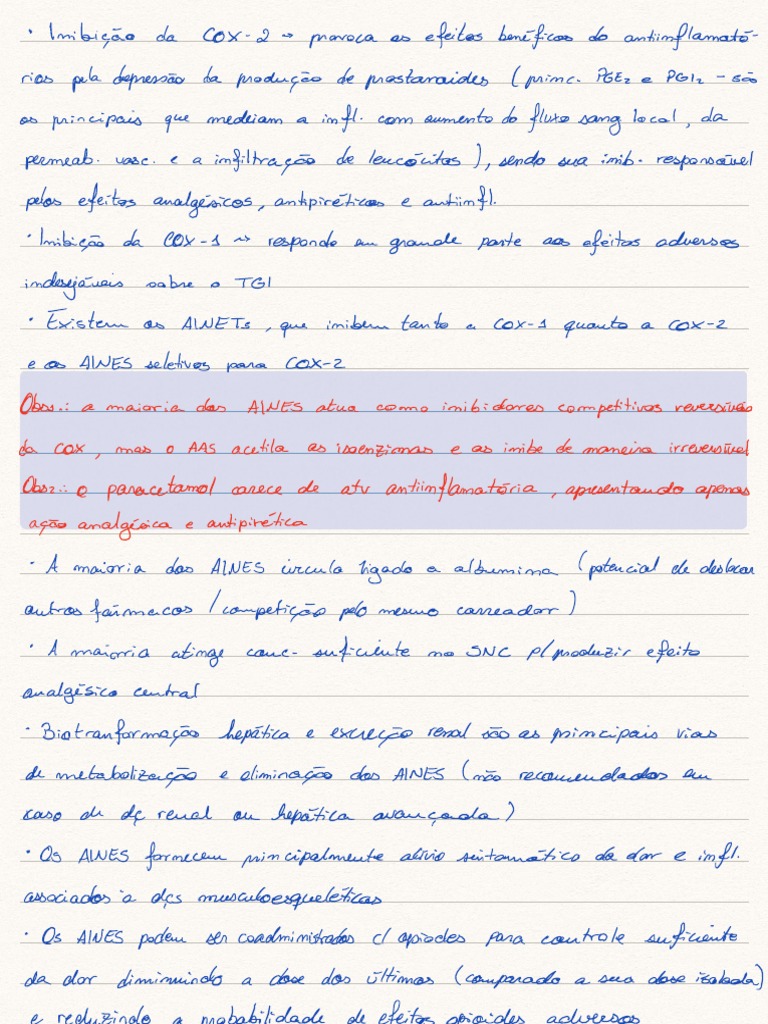 · Inibição da COX-2 → provoca os efeitos benéficos do antiinflamató-
rios pela depressão da produção de prostanoides (princ. PGE2 e PGI2 - são
os principais que medeiam a infl. com aumento do fluxo sang local, da
permeab. vasc. e a infiltração de leucócitos), sendo sua inib. responsável
pelos efeitos analgésicos, antipiréticos e antiinfl.
· Inibição da COX-1 → responde em grande parte aos efeitos adversos
indesejáveis sobre o TGI
· Existem os AINETs, que inibem tanto a COX-1 quanto a COX-2
e os AINES seletivos para COX-2
Obs1.: a maioria dos AINES atua como inibidores competitivos reversíveis
da COX, mas o AAS acetila as isoenzimas e as inibe de maneira irreversível
Obs2.: o paracetamol carece de atv antiinflamatória, apresentando apenas
ação analgésica e antipirética
· A maioria dos AINES circula ligado a albumina (potencial de deslocar
outros fármacos / competição pelo mesmo carreador)
· A maioria atinge conc- suficiente no SNC p/ produzir efeito
analgésico central
· Biotranformação hepática e excreção renal são as principais vias
de metabolização e eliminação dos AINES (não recomendados em
caso de dç renal ou hepática avançada)
· Os AINES fornecem principalmente alívio sintomático da dor e infl.
associados à dçs musculoesqueléticas
· Os AINES podem ser coadministrados c/ opioides para controle suficiente
da dor diminuindo a dose dos últimos (comparado a sua dose isolada)
e reduzindo a probabilidade de efeitos opioides adversos